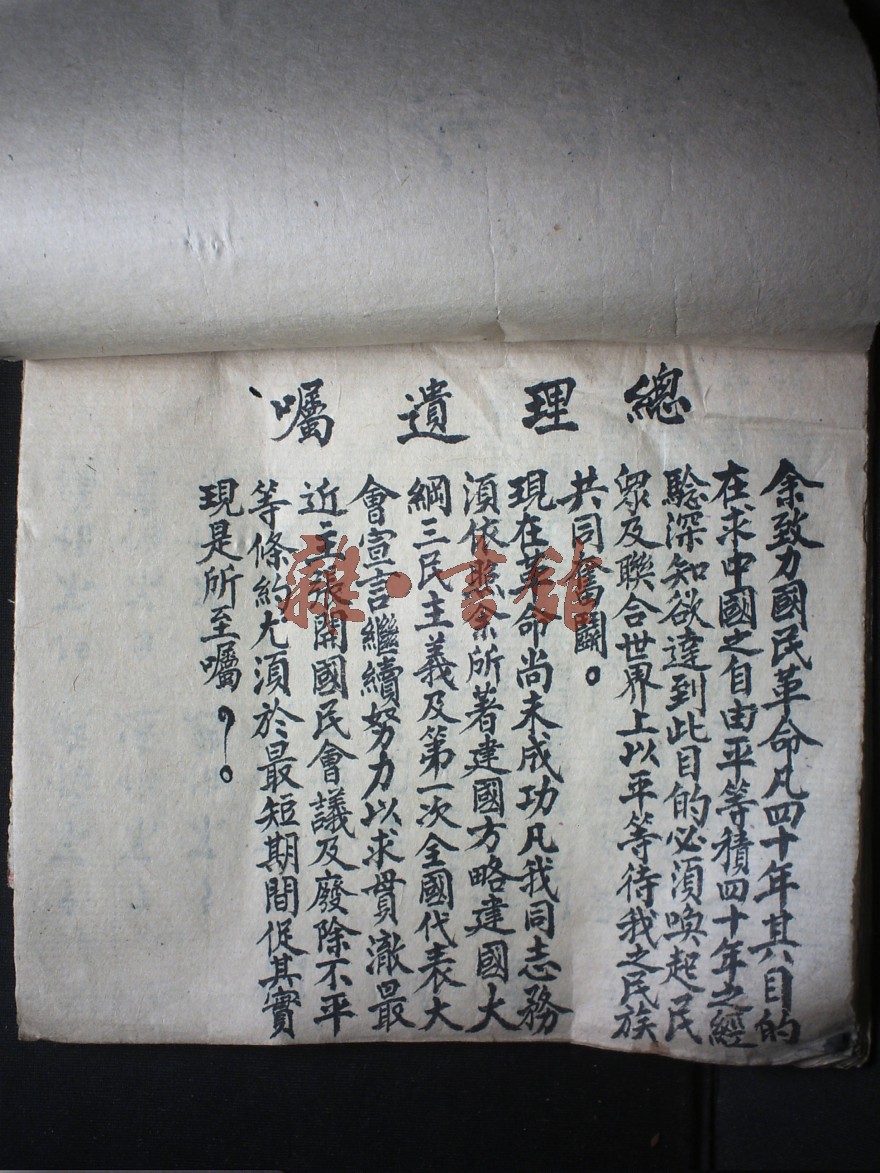 總理遺囑
余致力國民革命凡四十年其目的
在求中國之自由平等積四十年之經
驗深知欲達到此目的必須喚起民
眾及聯合世界上以平等待我之民族
共同奮鬪。
現在革命尚未成功凡我同志務
須依照余所著建國方略建國大
綱三民主義及第一次全國代表大
會宣言繼續努力以求貫澈最
近主張開國民會議及廢除不平
等條約尤須於最短期間促其實
現是所至囑。
雜·書館